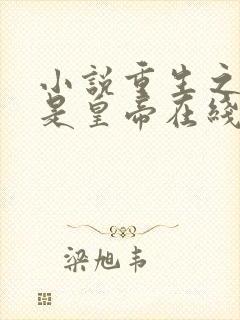 小說重生之
是皇帝在綫
梁旭韦